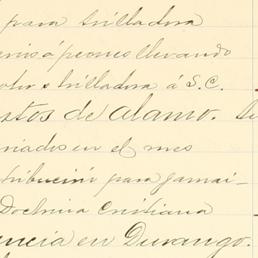 para trilladora
á peones llevando
trilladora á S.C.
stos de alamo.
riados en el mes
tribución para gamai-
Doctrina Cristiana
encia en Durango.